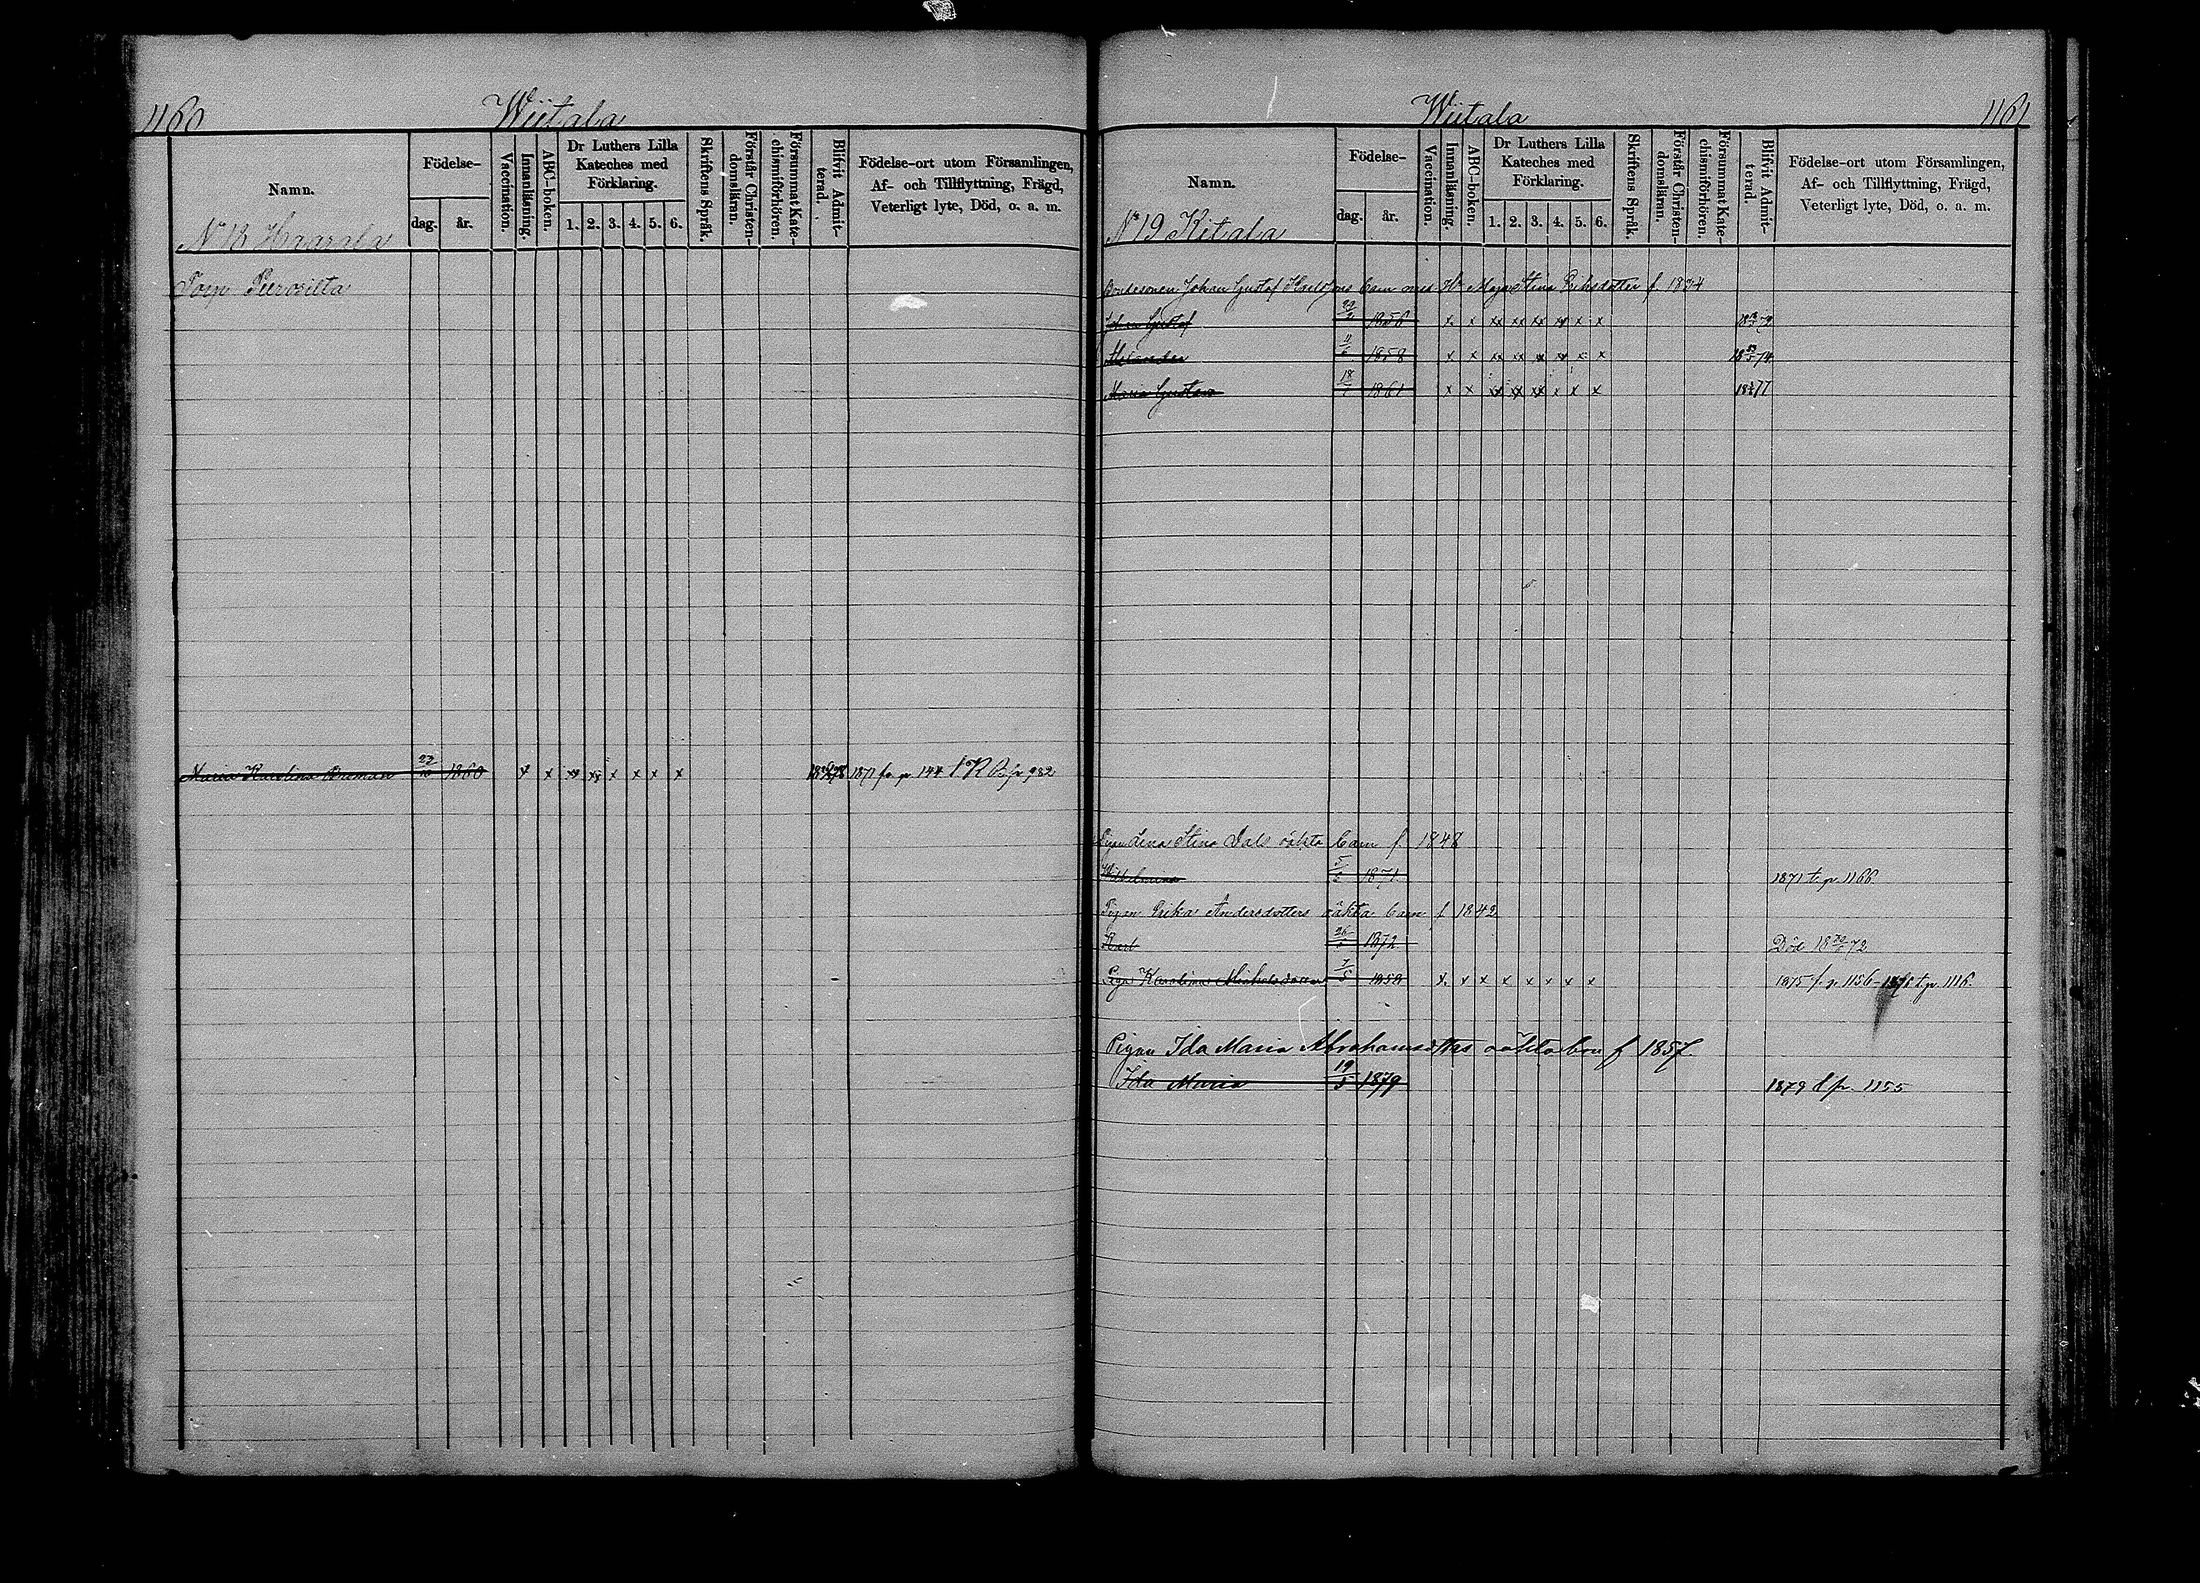 1160
Wiitala
Namn.
Födelse-
dag.
år.
Vaccination.
Innanläsning.
ABC-boken.
Dr Luthers Lilla
Kateches med
Förklaring.
1. 2. 3. 4. 5. 6.
Skriftens Språk.
Förstår Christen-
domsläran.
Försummat Kate-
chismiförhören.
Blifvit Admit-
terad.
Födelse-ort utom Församlingen,
Af- och Tillflyttning, Frägd,
Veterligt lyte, Död, o. a. m.
No 18 Haarala
Torp
Maria Karolina 1860 x x xx xx x x x x 1877 fr. p. 144 982
Wiitala
1161
Namn.
Födelse-
dag.
år.
Vaccination.
Innanläsning.
ABC-boken.
Dr Luthers Lilla
Kateches med
Förklaring.
1. 2. 3. 4. 5. 6.
Skriftens Språk.
Förstår Christen-
domsläran.
Försummat Kate-
chismiförhören.
Blifvit Admit-
terad.
Födelse-ort utom Församlingen,
Af- och Tillflyttning, Frägd,
Veterligt lyte, Död, o. a. m.
No 19 Kitala
Bondesonen Johan Gustaf barn med Maja Stina Eriksdotter f. 1834
Johan Gustaf 1856 x x xx xx xx xx x x
1858 x x xx xx xx xx x x
Maria Gustava 18 1861 x x xx xx xx x x x
Pigan Lena Stina Dals oäkta barn f. 1848
Wilhelmina 1871 1871 t. p. 1166
Pigan Erika Andersdotters oäkta barn f. 1842
Karl 26 1872 Död 72
Pigan Karolina 7/5 x x x x x x x x 1875 f. p. 1156 t. p. 1116
Pigan Ida Maria Abrahamsdttrs oäkta brn f 1857.
Ida Maria 19/5 1879 1879 1155